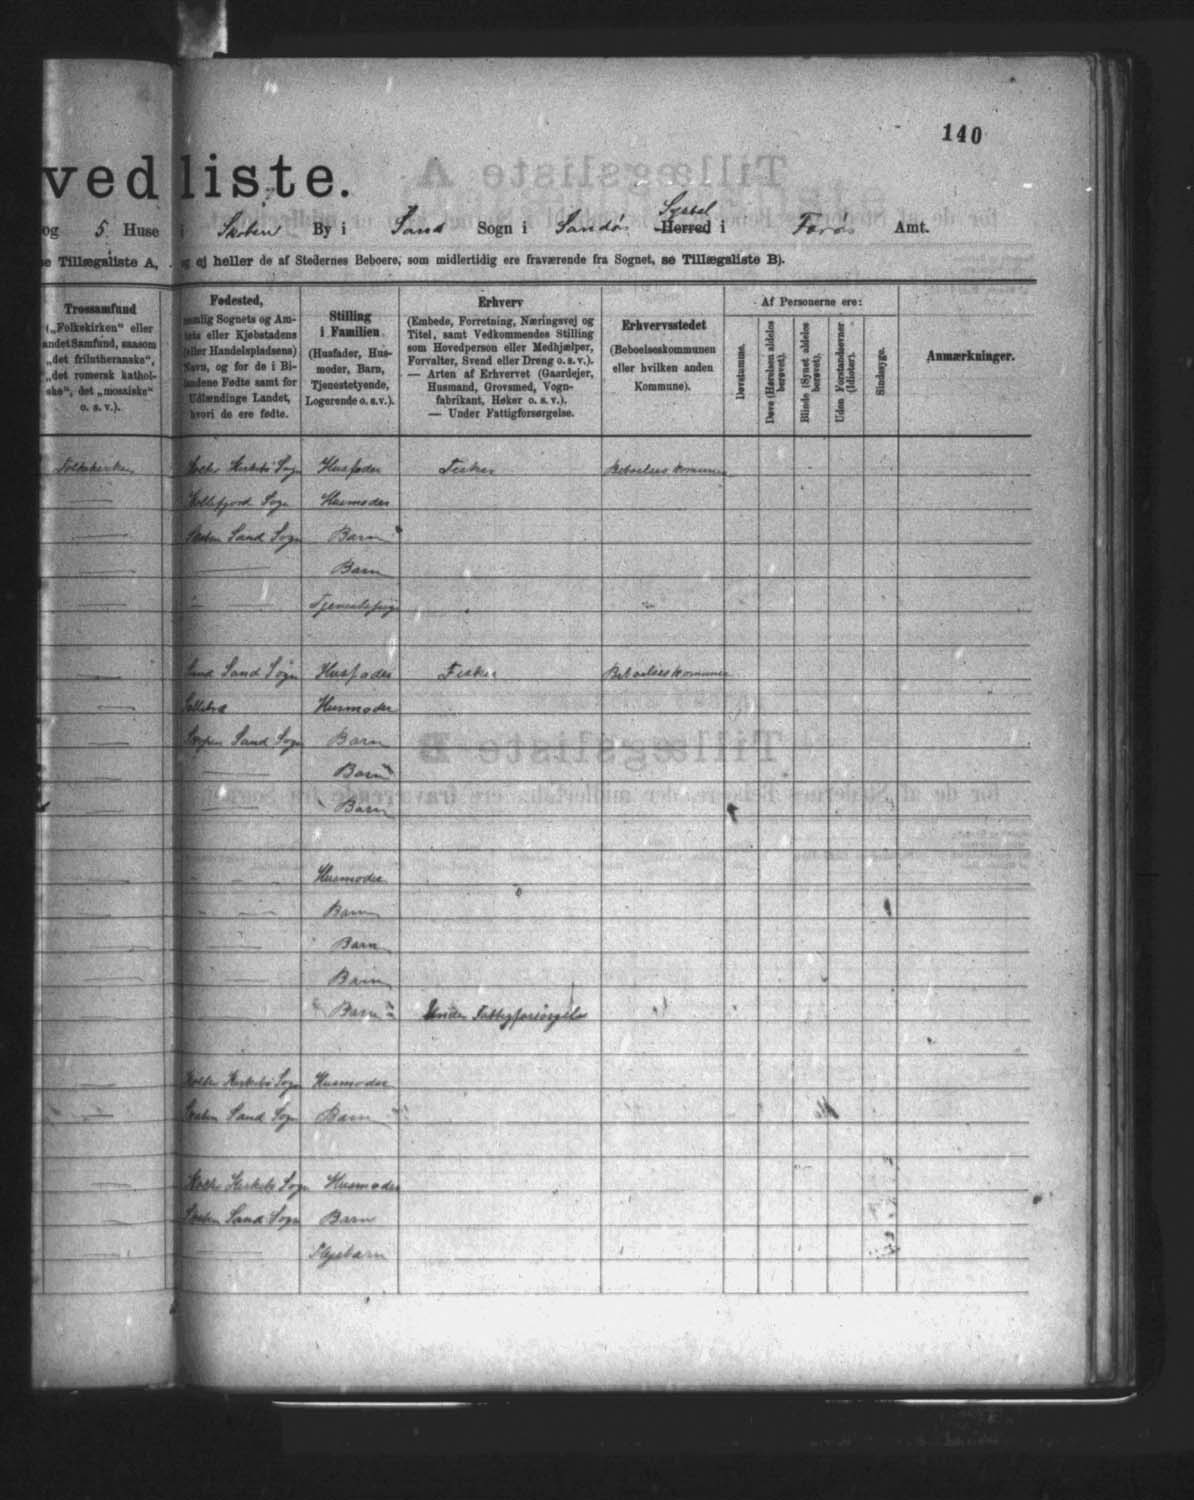 140
vedliste.
og 5 Huse i Skoben By i Sand Sogn i Sandø Syssel Herred i Færø Amt.
se Tillægsliste A, og ej heller de af Stedernes Beboere, som midlertidig ere fraværende fra Sognet, se Tillægsliste B).
Trossamfund
(„Folkekirken“ eller
andet Samfund, saasom
„det frilutheranske“,
„det romersk kathol-
ske“, det „mosaiske“
o. s. v.).
Fødested,
nemlig Sognets og Am-
tets eller Kjøbstadens
(eller Handelspladsens)
Navn, og for de i Bi-
landene Fødte samt for
Udlændinge Landet,
hvori de ere fødte.
Stilling
i Familien
(Husfader, Hus-
moder, Barn,
Tjenestetyende,
Logerende o. s. v.).
Erhverv
(Embede, Forretning, Næringsvej og
Titel, samt Vedkommendes Stilling
som Hovedperson eller Medhjælper,
Forvalter, Svend eller Dreng o. s. v.).
— Arten af Erhvervet (Gaardejer,
Husmand, Grovsmed, Vogn-
fabrikant, Høker o. s. v.).
— Under Fattigforsørgelse.
Erhvervsstedet
(Beboelseskommunen
eller hvilken anden
Kommune).
Af Personerne ere:
Døvstumme.
Døve (Hørelsen aldeles
berøvet).
Blinde (Synet aldeles
berøvet).
Uden Forstandsevner
(Idioter).
Sindssyge.
Anmærkninger.
Folkekirken Kirkebø Sogn Husfader Fisker Beboelseskommunen
— Kollefjord Sogn Husmoder
— Skoben Sand Sogn Barn
— — Barn
— — Tjenestepige
— Sand Sand Sogn Husfader Fisker Beboelseskommunen
— Husmoder
— Skopen Sand Sogn Barn
— — Barn
— — Barn
— — Husmoder
— — Barn
— — Barn
— — Barn
— — Barn Under Fattigforsørgelse
— Kirkebø Sogn Husmoder
— Skoben Sand Sogn Barn
— Kirkebø Sogn Husmoder
— Skoben Sand Sogn Barn
— — Plejebarn